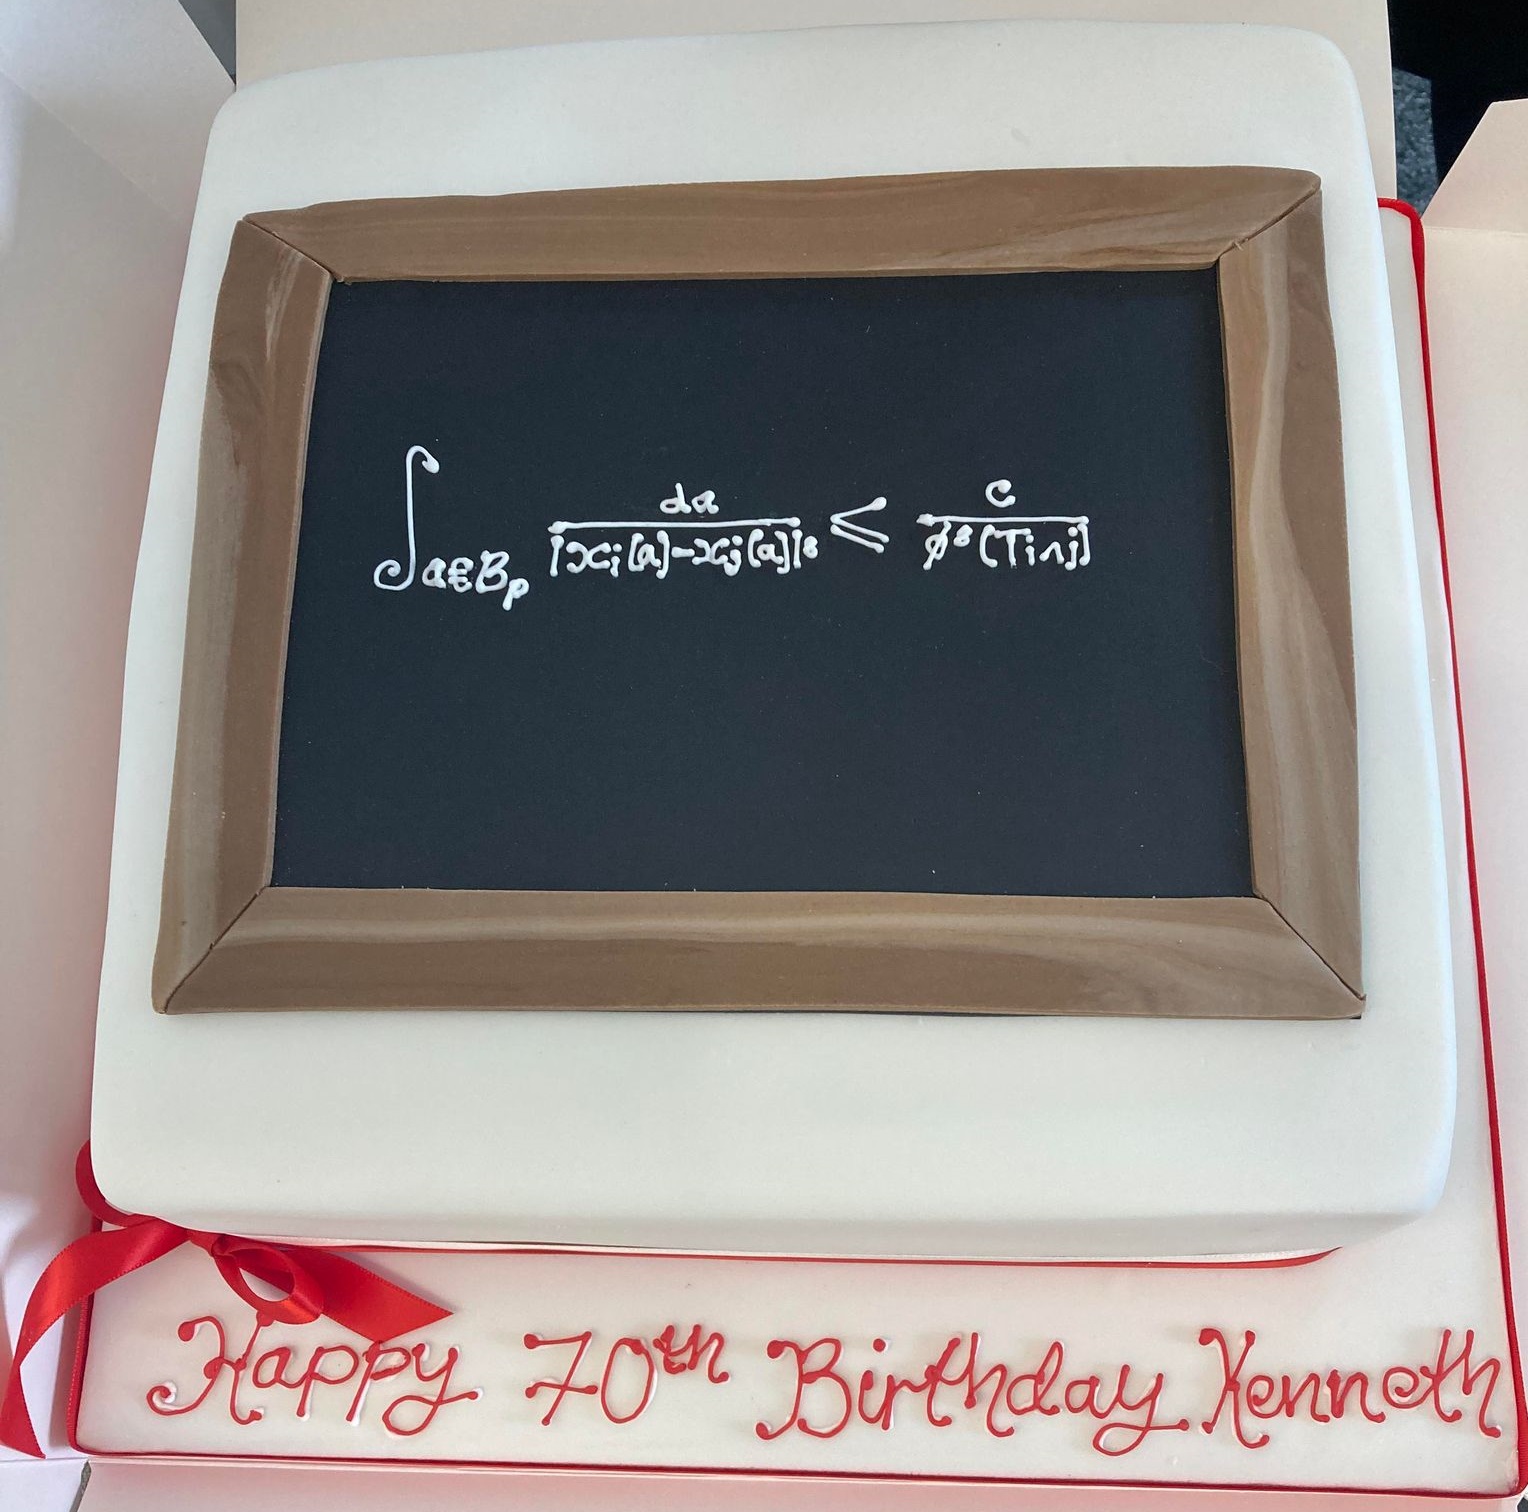 ∫a∈Bρ da / |xi(a)-xj(a)|s ≤ c / ϕs(Ti∧j)
Happy 70th Birthday Kenneth